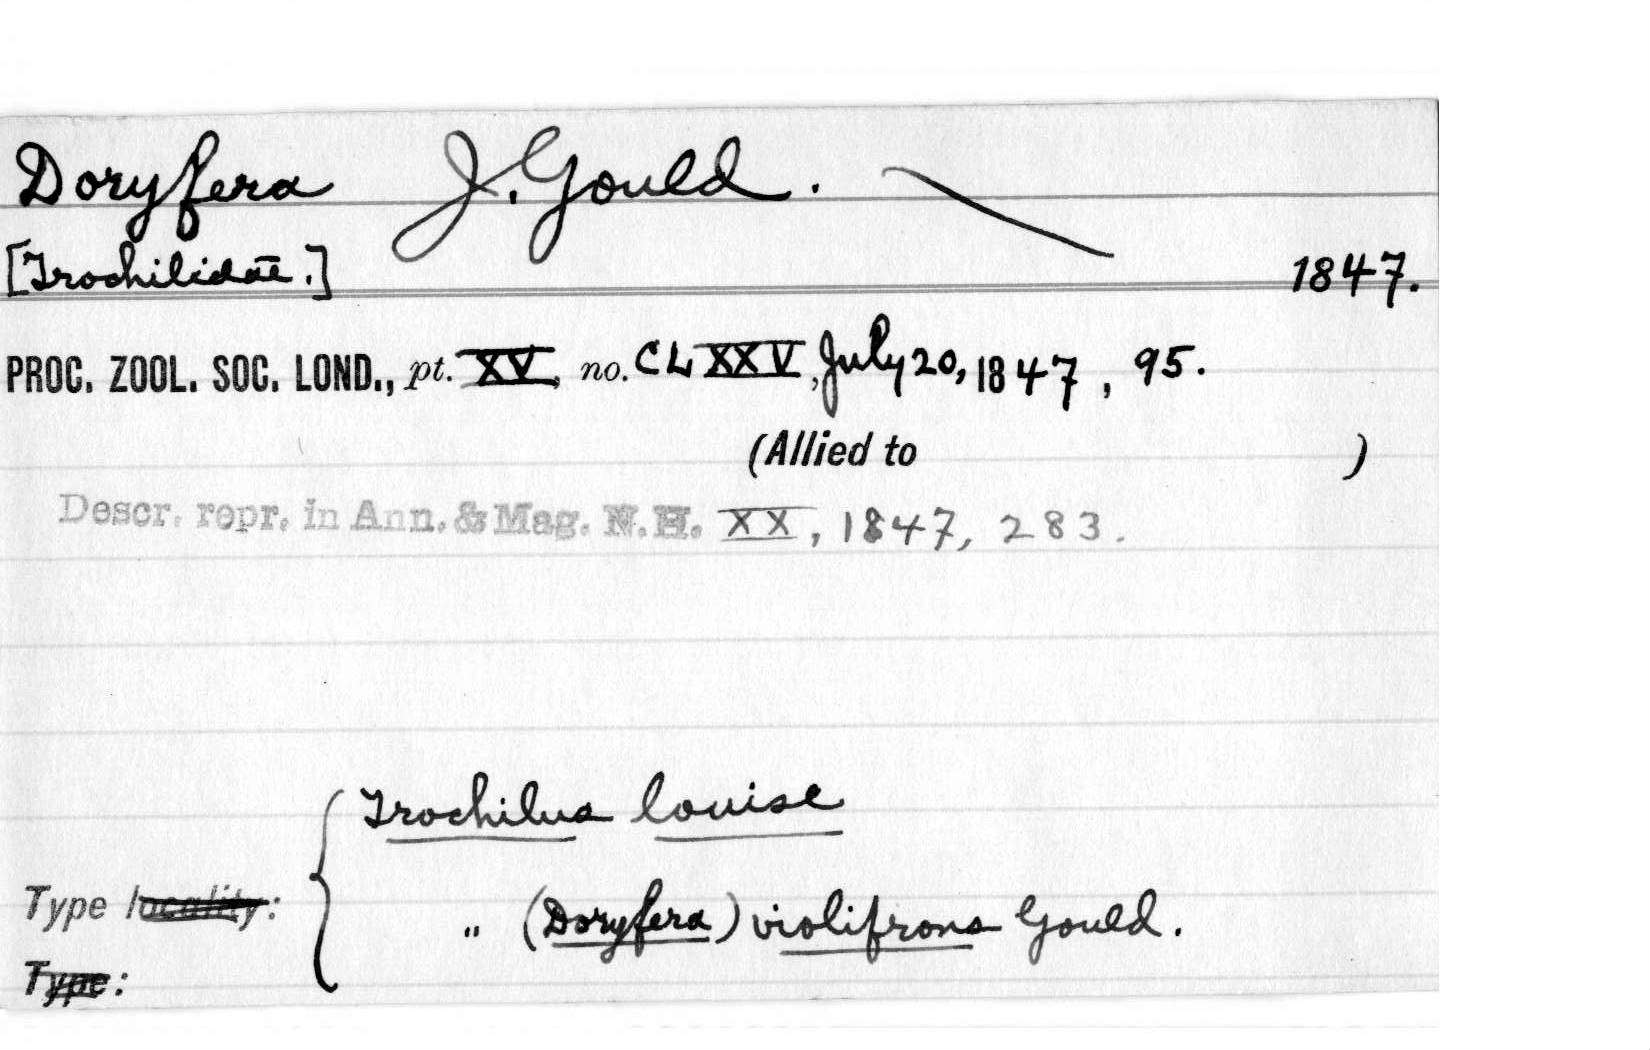 Doryfera J. Gould.
[Trochilidae.] 1847.
PROC. ZOOL. SOC. LOND., pt. XV, no. CLXXV, July 20, 1847, 95.
(Allied to )
Descr. repr. in Ann. & Mag. N.H. XX, 1847, 283.
Trochilus louise
Type locality:
" (Doryfera) violifrons Gould.
Type: